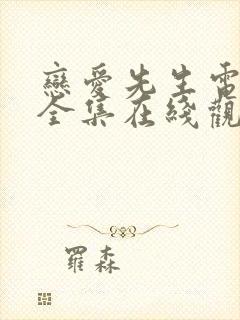 戀愛先生電
全集在綫觀
羅森